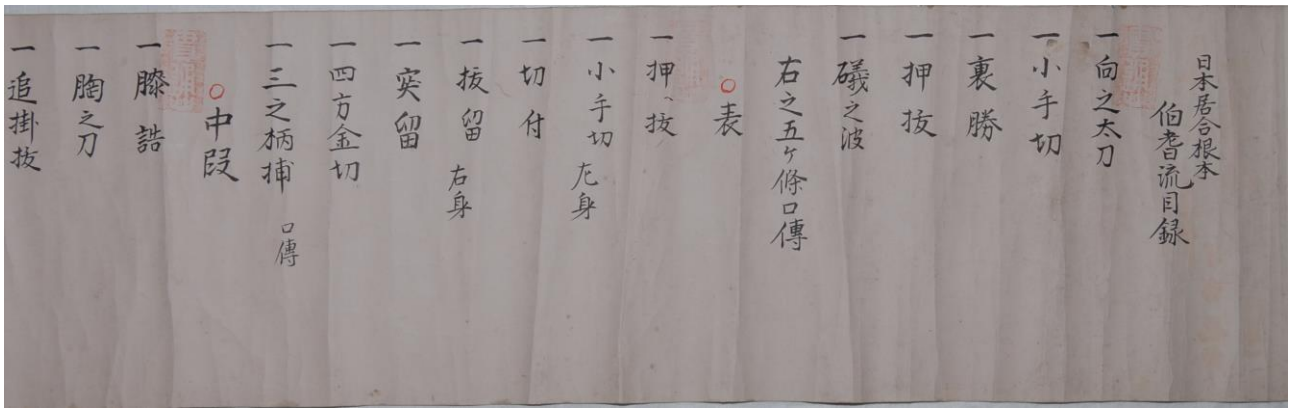 日本居合根本
伯耆流目録
一向之太刀
一小手切
一裏勝
一押抜
一礒之波
右之五ヶ條口傳
○表
一押抜
一小手切 左身
一切付
一抜留 右身
一突留
一四方金切
一三之柄捕 口傳
○中段
一膝詰
一胸之刀
一追掛抜